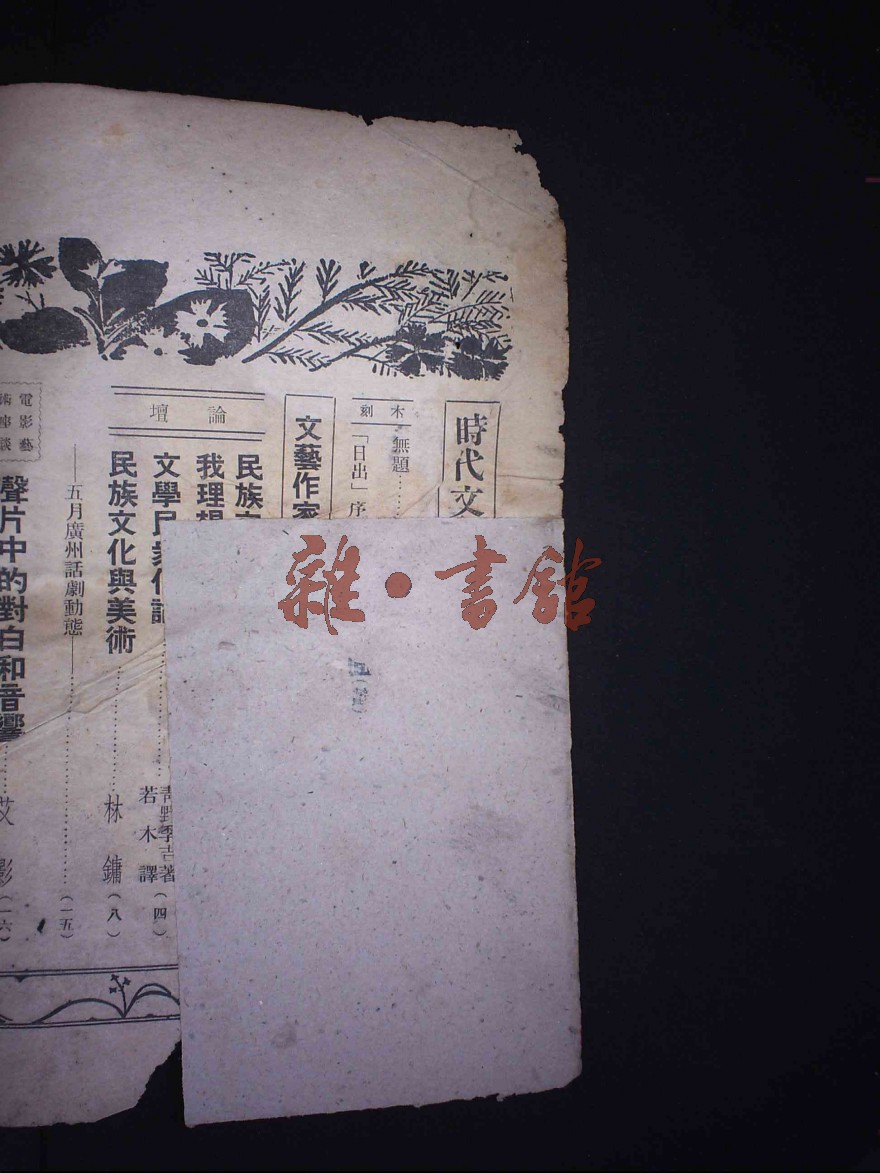 時代文
木刻
無題
「日出」序
文藝作家
論壇
民族
我理想
文學民衆化論
青野季吉著
若木譯
（四）
民族文化與美術
林鏞
（八）
——五月廣州話劇動態——
（一五）
電影藝術座談
聲片中的對白和音響
艾影
（一六）
雜·書館